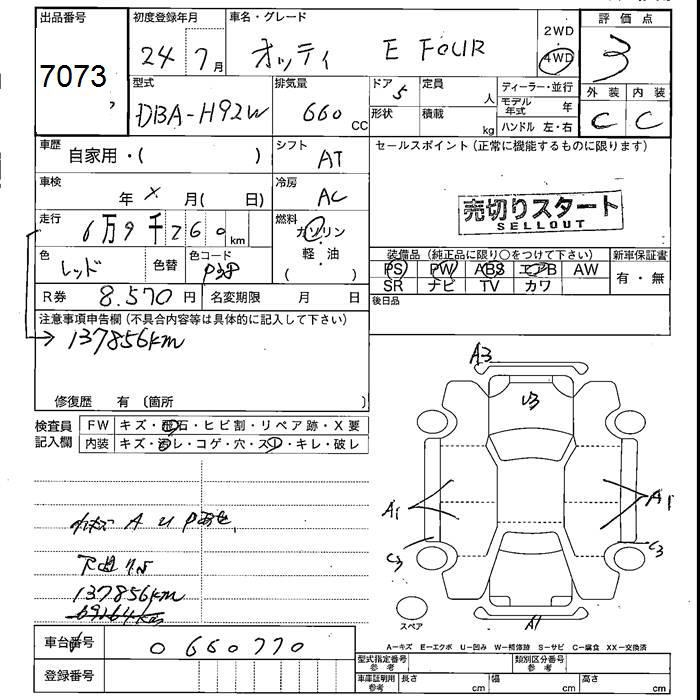 出品番号 初度登録年月 車名・グレード 評価点
7073 24年7月 オッティ E FOUR 2WD 4WD 3
型式 排気量 ドア 定員 ディーラー・並行 外装 内装
DBA-H92W 660 CC 5 人 モデル年式 年 C C
形状 積載 kg ハンドル 左・右
車歴 自家用・( ) シフト AT セールスポイント (正常に機能するものに限ります)
車検 年 X 月( 日) 冷房 AC
売切りスタート
SELLOUT
走行 6万9千260km 燃料 ガソリン 軽・油 ( )
色 レッド 色替 色コード P38
装備品 (純正品に限り○をつけて下さい) 新車保証書
PS PW ABS エアB AW 有・無
SR ナビ TV カワ
R券 8.570円 名変期限 月 日 後日品
注意事項申告欄 (不具合内容等は具体的に記入して下さい)
137856km
修復歴 有 〔箇所 〕
検査員記入欄 FW キズ・飛石・ヒビ割・リペア跡・X要
内装 キズ・汚レ・コゲ・穴・スレ・キレ・破レ
A3
U3
A1 A1
C3 C3
A1
スペア
A U
137856km
69264km
A−キズ E−エクボ U−凹み W−補修跡 S−サビ C−腐食 XX−交換済
車台番号 0660770
登録番号
型式指定番号 参考 類別区分番号 参考
車庫証明用 参考 長さ cm 幅 cm 高さ cm